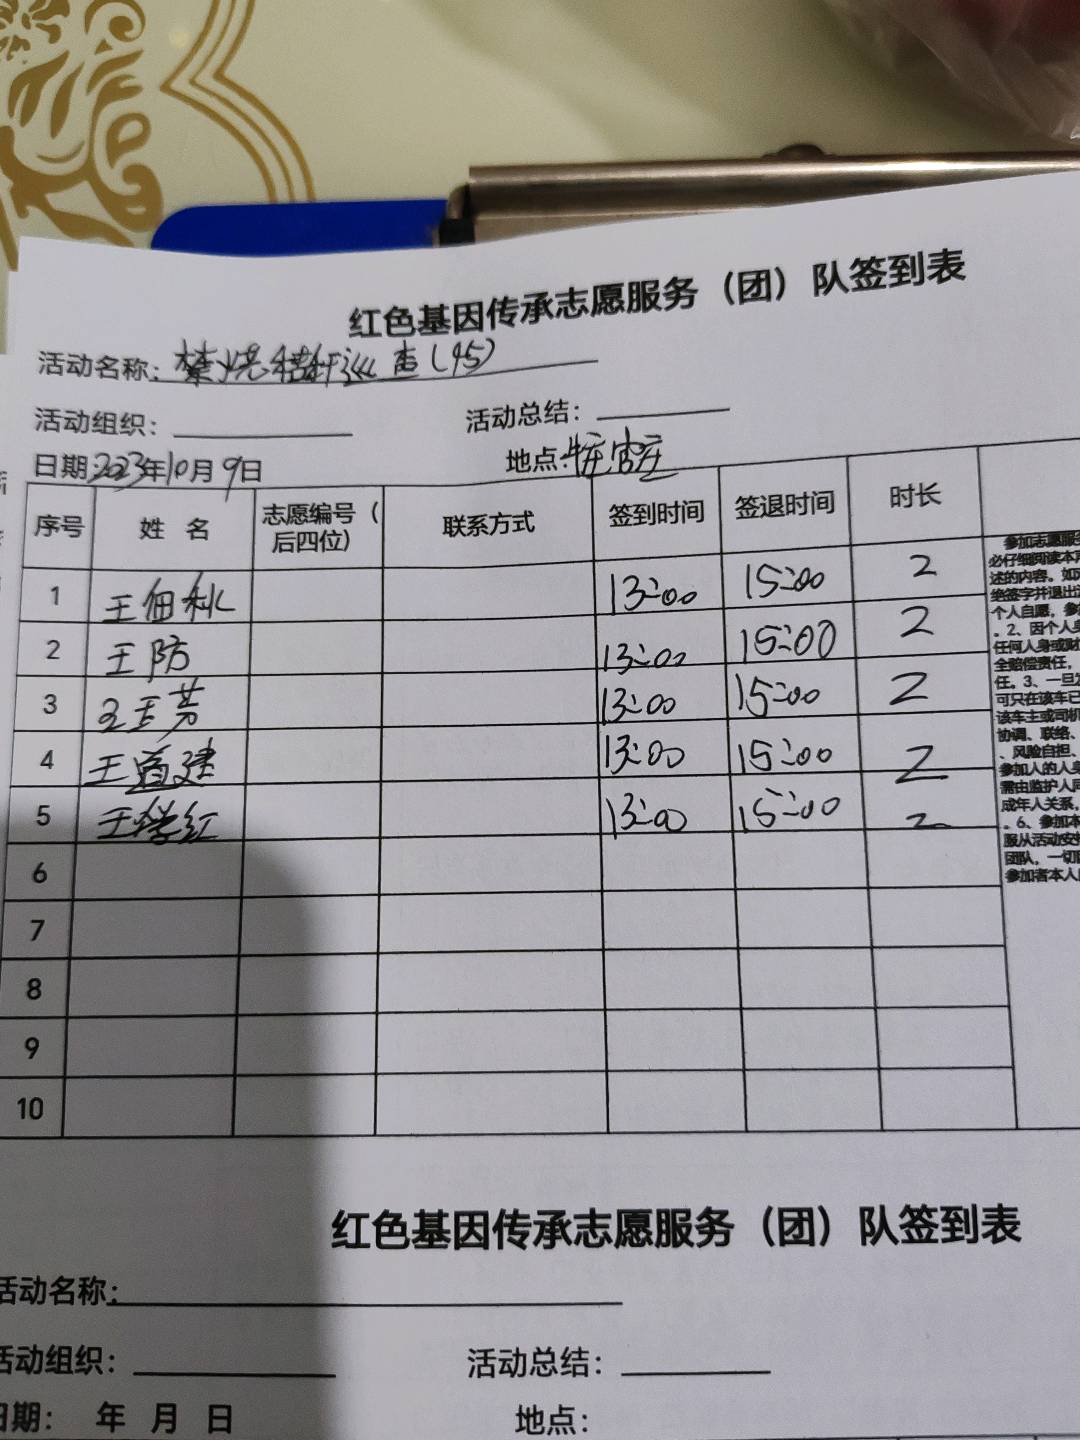 红色基因传承志愿服务（团）队签到表
活动名称：禁烧秸秆巡查(45)
活动组织：
活动总结：
日期:2023年10月9日
地点:
序号 姓 名 志愿编号（后四位） 联系方式 签到时间 签退时间 时长
1 王佃秋 13:00 15:00 2
2 王防 13:00 15:00 2
3 芳 13:00 15:00 2
4 王道建 13:00 15:00 2
5 王 红 13:00 15:00 2
6
7
8
9
10
参加志愿服
必仔细阅读本
述的内容。如
绝签字并退出
个人自愿，参
。2、因个人
任何人身或财
全赔偿责任，
任。3、一旦
可只在该车已
该车主或司机
协调、联络、
、风险自担、
参加人的人身
需由监护人同
成年人关系，
。6、参加本
服从活动安
团队，一切
参加者本人
红色基因传承志愿服务（团）队签到表
活动名称：
活动组织：
活动总结：
日期： 年 月 日
地点：